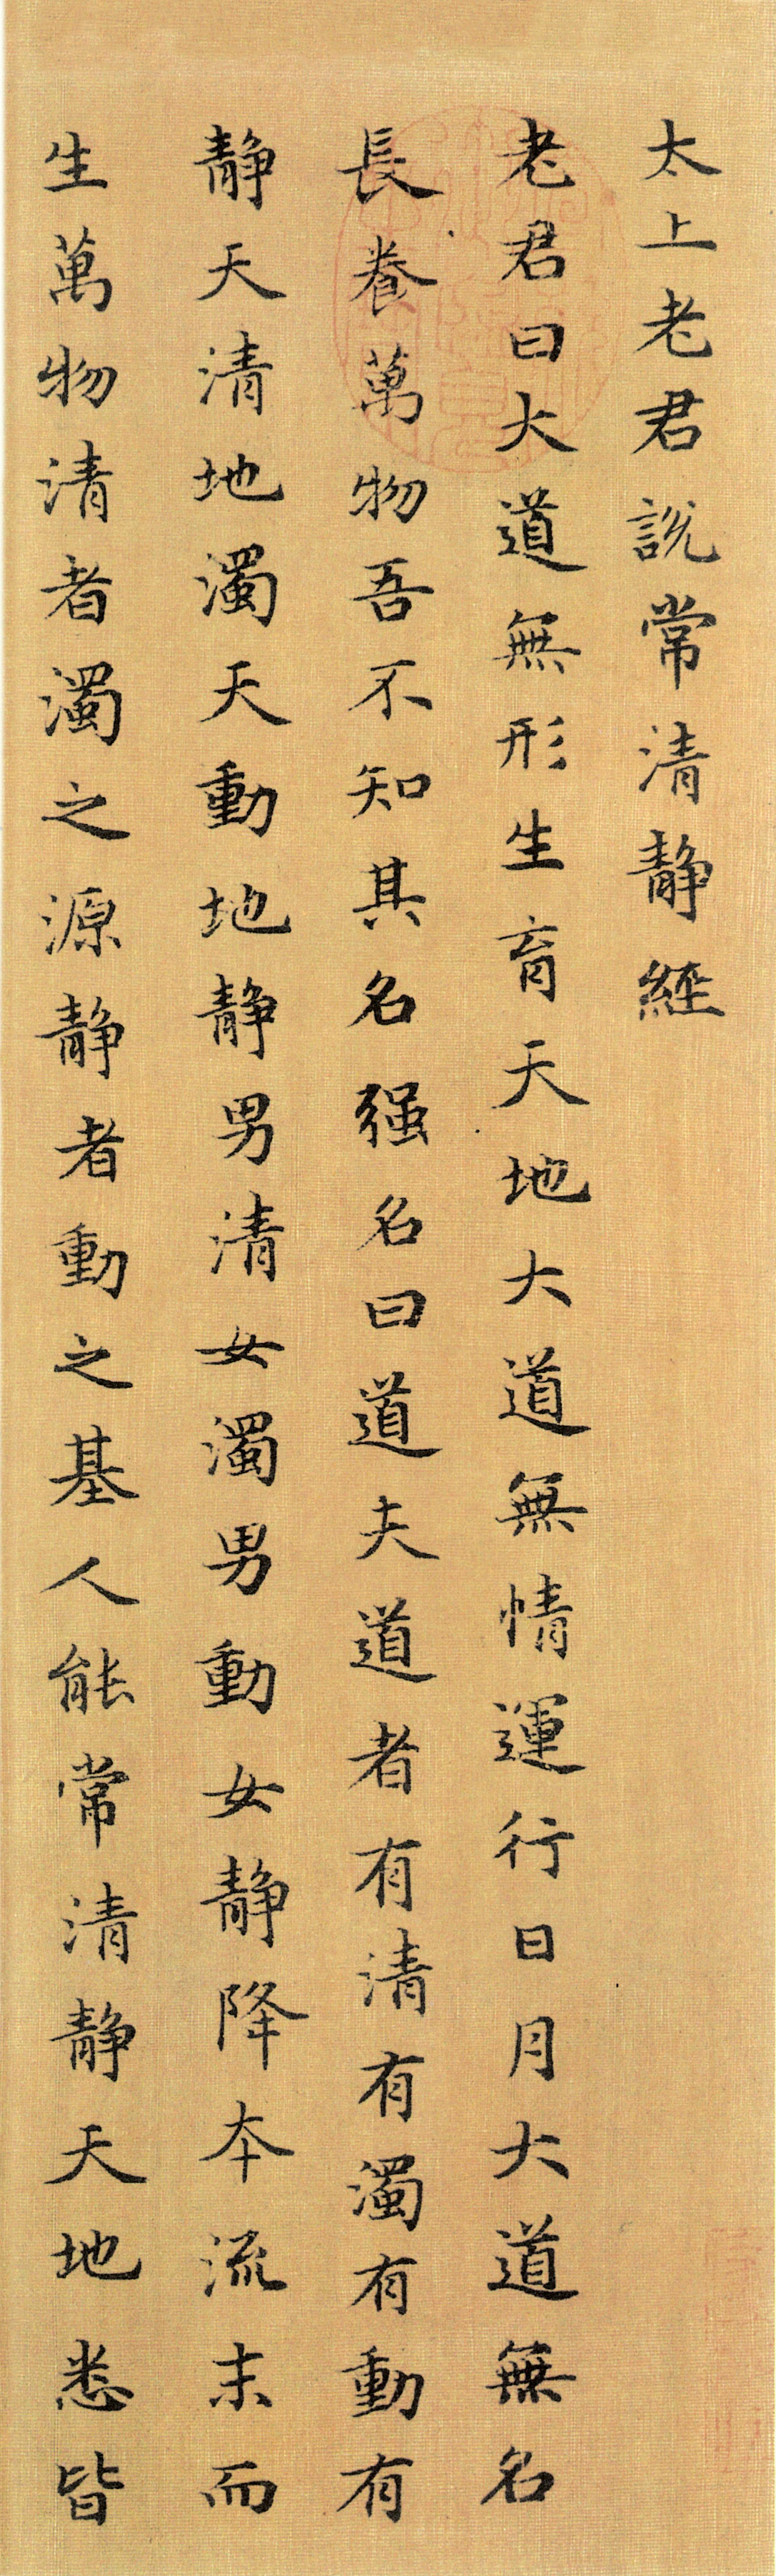 太上老君說常清靜經
老君曰大道無形生育天地大道無情運行日月大道無名
長養萬物吾不知其名强名曰道夫道者有清有濁有動有
靜天清地濁天動地靜男清女濁男動女靜降夲流末而
生萬物清者濁之源靜者動之基人能常清靜天地悉皆